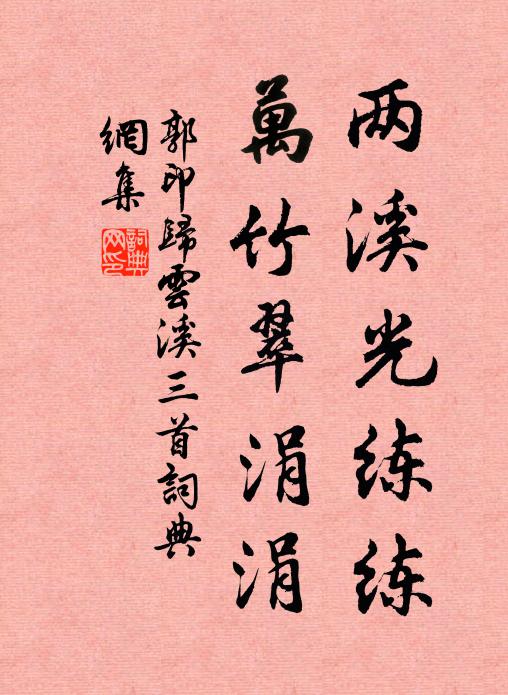 两溪光练练
萬竹翠涓涓
郭印歸雲溪三首詞典
網集
詞典
网印